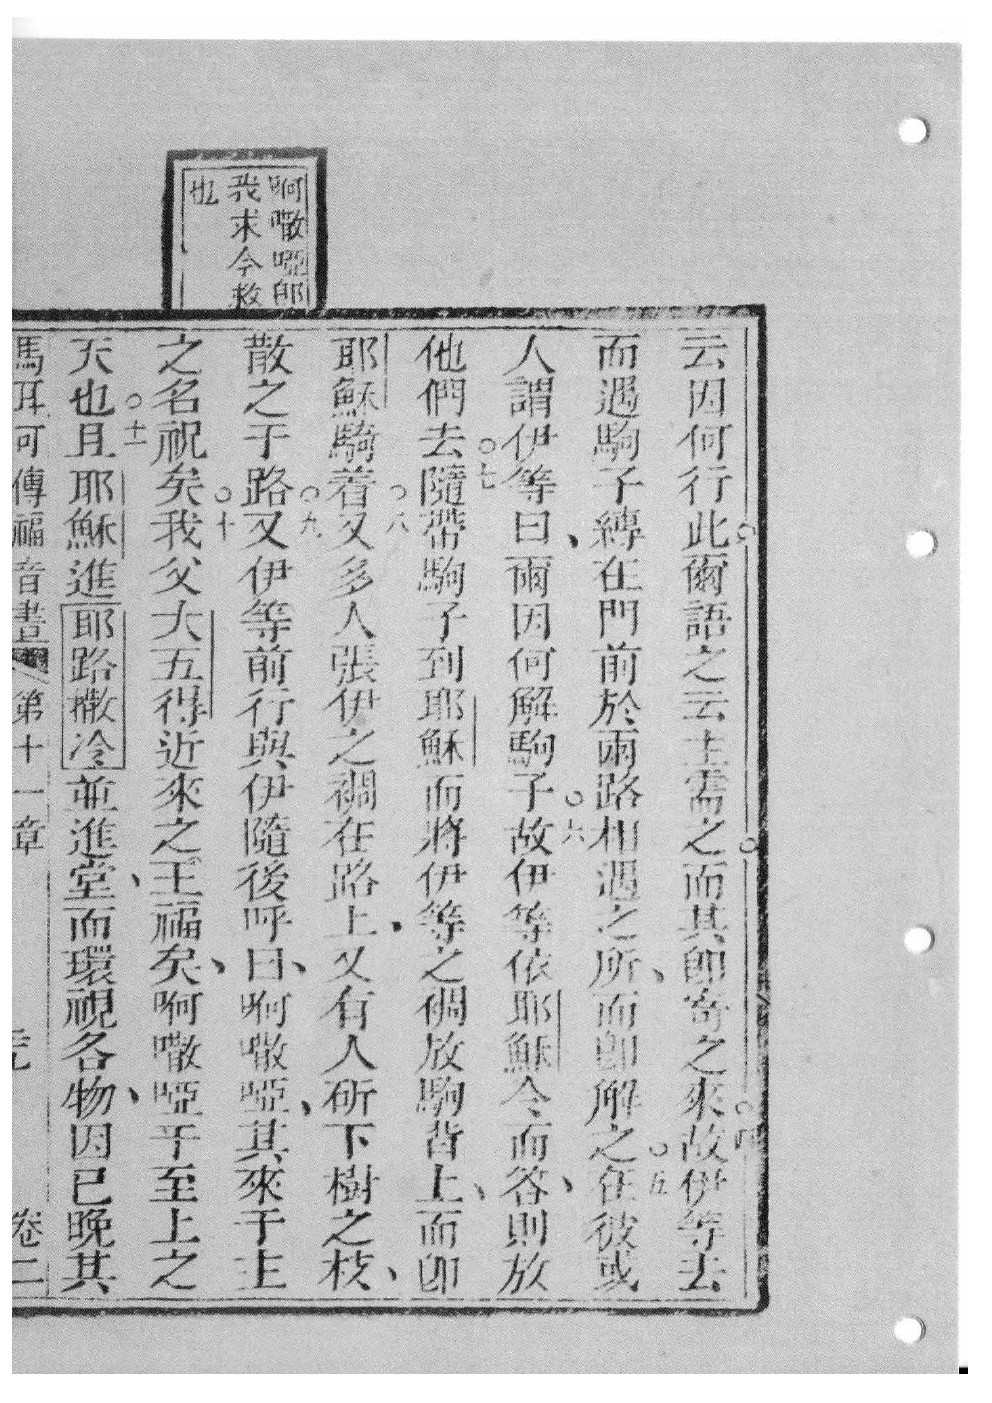 呵㗔啞即
我求今救
也
云因何行此爾語之云主需之而其即寄之來故伊等去
而遇駒子縛在門前於兩路相遇之所而即解之在彼或
人謂伊等曰爾因何解駒子故伊等依耶穌令而答則放
他們去隨帶駒子到耶穌而將伊等之裯放駒背上而即
耶穌騎着又多人張伊之裯在路上又有人斫下樹之枝
散之于路又伊等前行與伊隨後呼曰呵㗔啞其來于主
之名祝矣我父大五得近來之王福矣呵㗔啞乎至上之
天也且耶穌進耶路撒冷並進堂而環視各物因已晚其
馬耳可傳福音書 第十一章 卷二